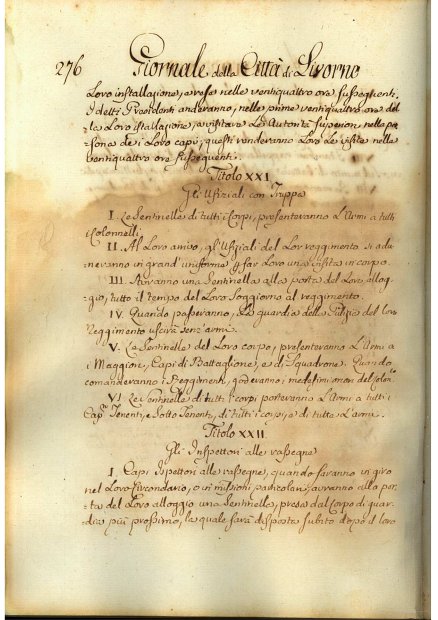 276 Giornale della Città di Livorno
Loro installazione, e rese nelle ventiquattro ore susseguenti.
I detti Presidenti anderanno, nelle prime ventiquattro ore del-
la Loro installazione, a visitare Le Autorità superiori nelle per-
sone de i Loro capi, questi renderanno Loro Le visite nelle
ventiquattro ore susseguenti.
Titolo XXI
Gli Ufiziali con Truppa
I. Le Sentinelle di tutti i Corpi, presenteranno L'Armi a tutti
i Colonnelli
II. Al Loro arrivo, gl'Ufiziali del Lor reggimento si adu-
neranno in grand'uniforme p far Loro una visita in corpo.
III. Averanno una Sentinella alla porta del Loro allog-
gio, tutto il tempo del Loro Soggiorno al reggimento.
IV. Quando passeranno, La guardia della Polizia del Loro
Reggimento uscirà senz'armi.
V. Le Sentinelle del Loro corpo, presenteranno L'Armi a
i Maggiori, Capi di Battaglione, e di Squadrone. Quando
comanderanno i Reggimenti, goderanno i medesimi onori del Colonlo
VI. Le Sentinelle di tutti i corpi porteranno L'Armi a tutti i
Capni Tenenti, e Sotto Tenenti, di tutti i corpi, e di tutte L'armi.
Titolo XXII
Gli Inspettori alle rassegne
I. Capi Ispettori alle rassegne, quando saranno in giro
nel Loro Circondario, o in missioni particolari, avranno alla por-
ta del Loro alloggio una Sentinella, presa dal Corpo di guar-
dia più prossimo, la quale sarà disposta subito dopo il loro